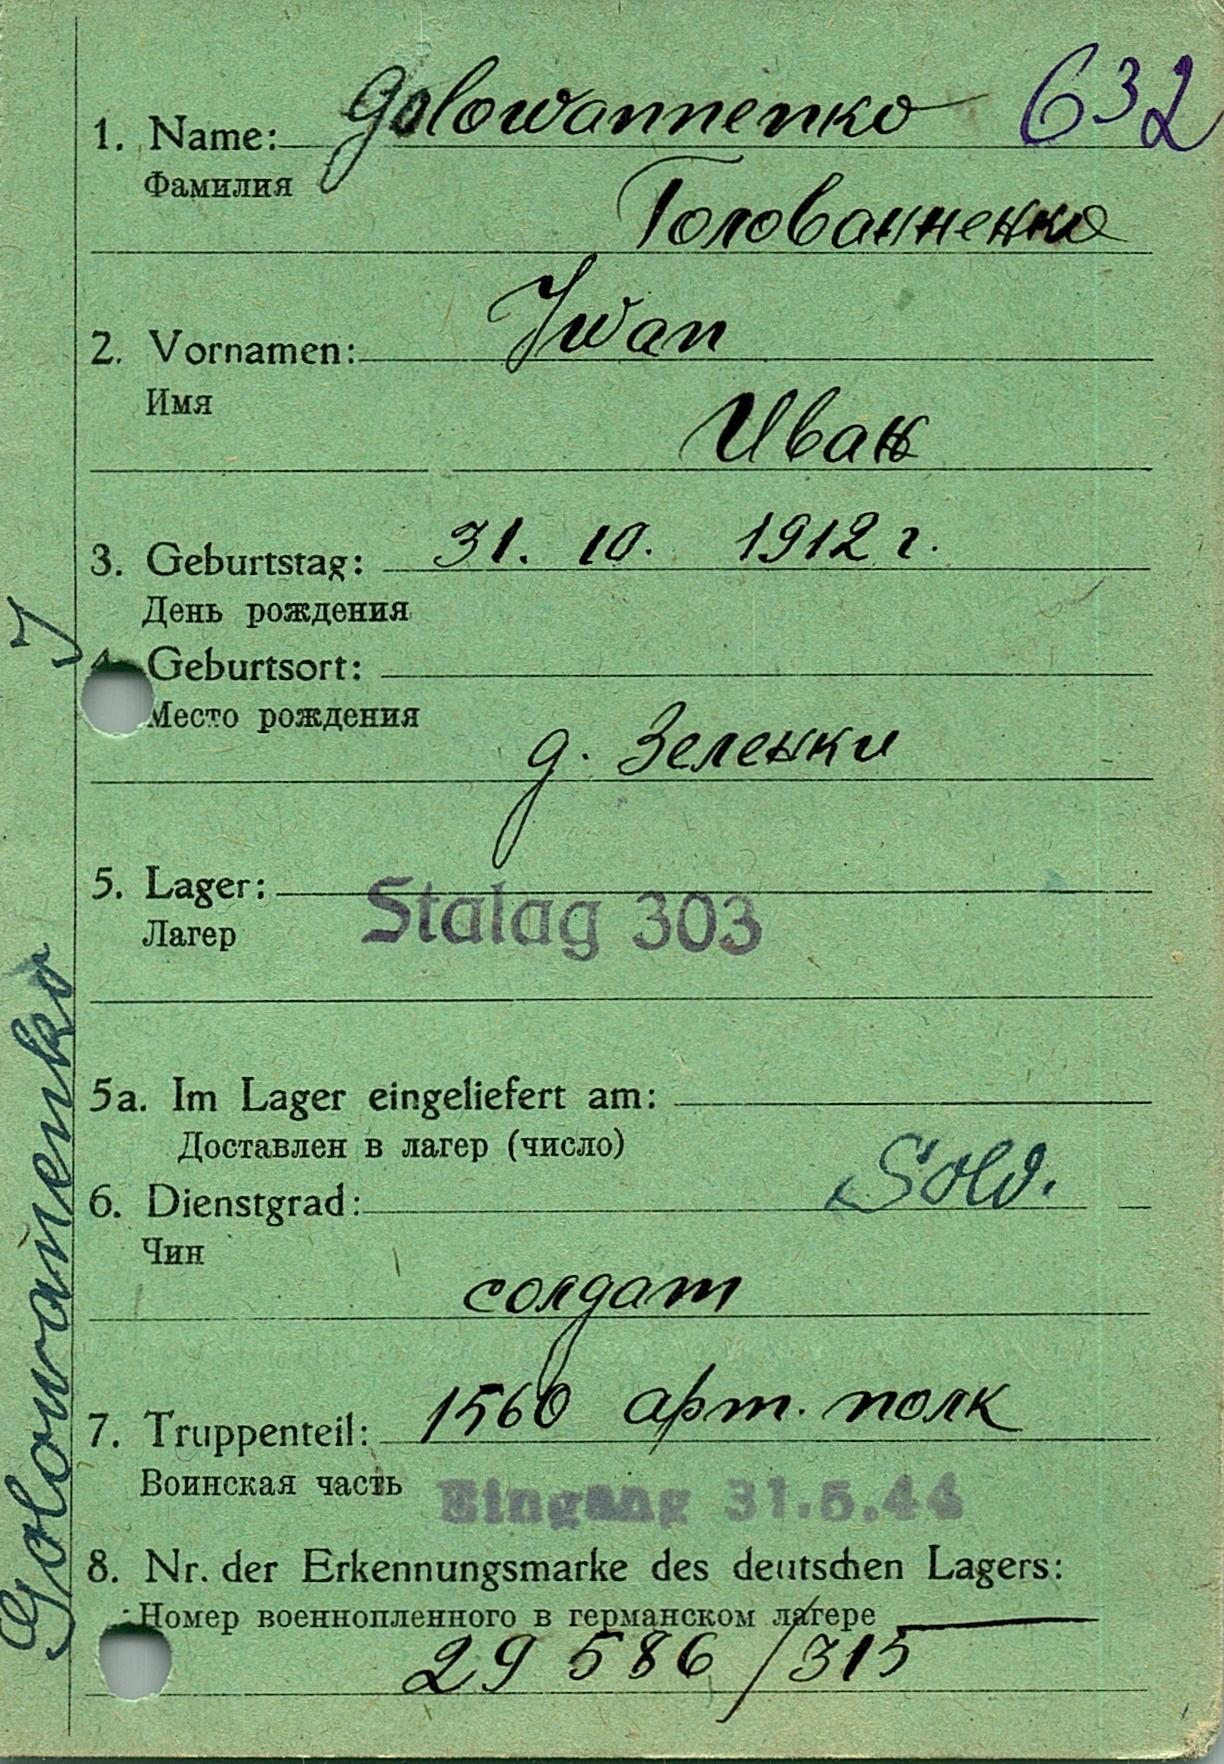 632
1. Name: Golowannenko
Фамилия
Голованненко
2. Vornamen: Iwan
Имя
Иван
3. Geburtstag: 31. 10. 1912 г.
День рождения
4. Geburtsort:
Место рождения
д. Зеленки
5. Lager: Stalag 303
Лагер
5a. Im Lager eingeliefert am:
Доставлен в лагер (число)
6. Dienstgrad: Sold.
Чин
солдат
7. Truppenteil: 1560 арт. полк
Воинская часть
Eingang 31.5.44
8. Nr. der Erkennungsmarke des deutschen Lagers:
Номер военнопленного в германском лагере
29 586/315
Golowanenko J